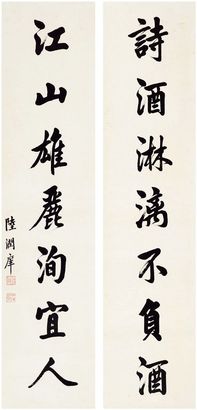 詩酒淋漓不負酒
江山雄麗洵宜人
陸潤庠